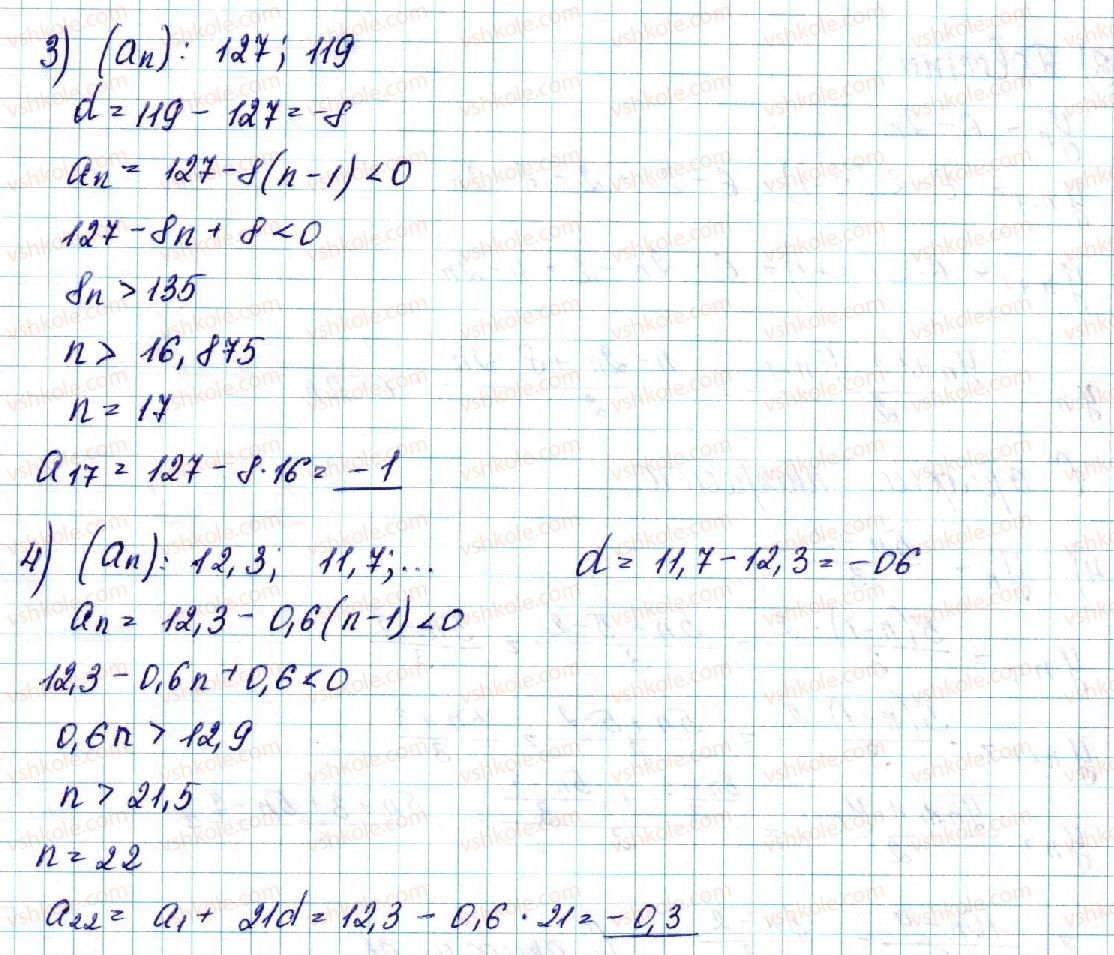 3) (an): 127; 119
d = 119 - 127 = -8
an = 127 - 8(n - 1) < 0
127 - 8n + 8 < 0
8n > 135
n > 16,875
n = 17
a17 = 127 - 8·16 = -1
4) (an): 12,3; 11,7;... d = 11,7 - 12,3 = -06
an = 12,3 - 0,6(n-1) < 0
12,3 - 0,6n + 0,6 < 0
0,6n > 12,9
n > 21,5
n = 22
a22 = a1 + 21d = 12,3 - 0,6 · 21 = -0,3
vshkole.com